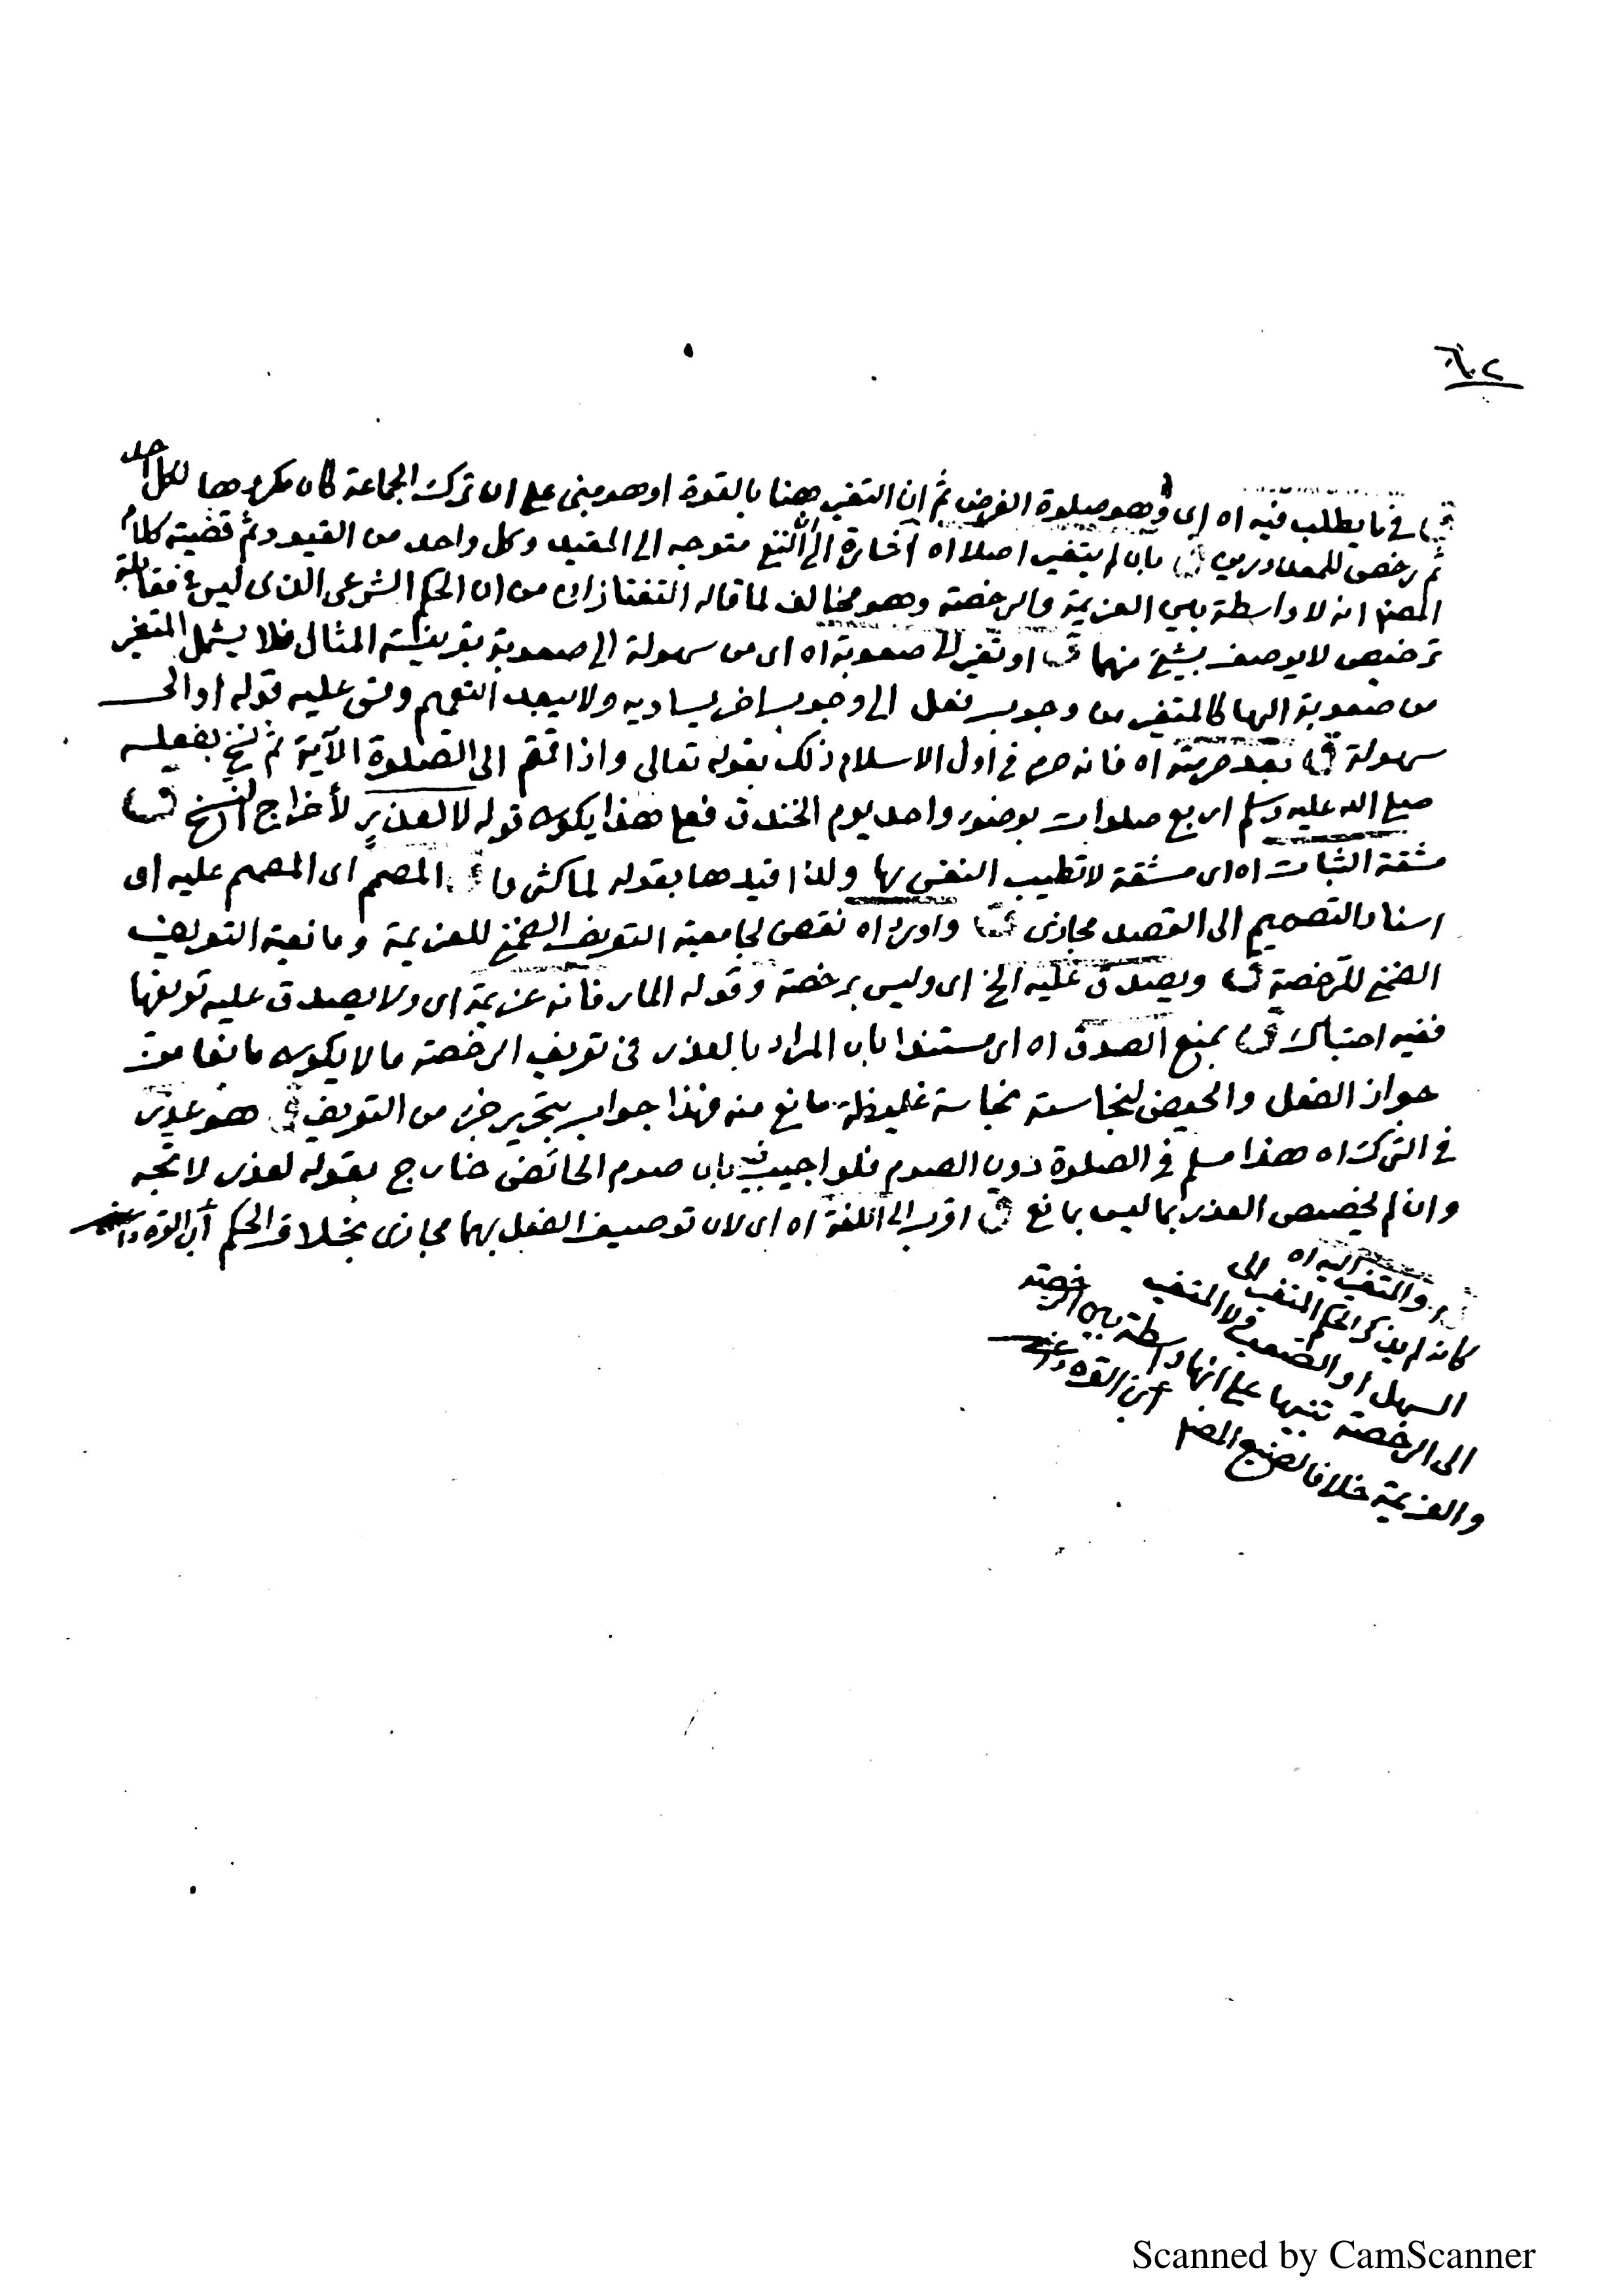 ٦٠٢
في ما يطلب فيه اه اى وهو صلوة الفرض ثم ان التغير ههنا بالقوة او هو مبنى على ان ترك الجماعة كان مكروها لكل احد
ثم رخص للمعذورين بان لم يتغير اصلا اه اشارة الى ان النفى متوجه الى المقيد وكل واحد من القيود ثم قضية كلام
المصنف انه لا واسطة بين العزيمة والرخصة وهو مخالف لما قاله التفتازانى من ان الحكم الشرعى الذى ليس فى مقابلة
ترخيص لا يوصف بشئ منهما ق او تغير الى صعوبة اه اى من سهولة الى صعوبة بقرينة المثال فلا يشمل المتغير
من صعوبة اليها كالمتغير من وجوب فعل الى وجوب اخر يساويه ولا يبعد التعميم وقس عليه قوله او الى
سهولة ق بعد حرمته اه فانه حرم فى اول الاسلام ذلك بقوله تعالى واذا قمتم الى الصلوة الآية ثم نسخ بفعله
صلى الله عليه وسلم اربع صلوات بوضوء واحد يوم الخندق فعلى هذا يكون قوله لا لعذر لاخراج النسخ ق
مشقة الثبات اه اى مشقة لا تطيب النفس بها ولذا قيدها بقوله لما كثروا ق المصمم اى المصمم عليه او
اسناد التصميم الى القصد مجازى ق واورد اه نقض لجامعية التعريف الضمنى للعزيمة ومانعية التعريف
الضمنى للرخصة ق ويصدق عليه الخ اى وليس برخصة وقوله المار فانه عزيمة اى ولا يصدق عليه تعريفها
ففيه احتباك ق بمنع الصدق اه اى مستندا بان المراد بالعذر فى تعريف الرخصة ما لا يكون مانعا من
جواز الفعل والحيض لنجاسته نجاسة غليظة مانع منه فهذا جواب بتحرير جزء من التعريف ق هو عذر
فى الترك اه هذا مسلم فى الصلوة دون الصوم فلو اجيب بان صوم الحائض خارج بقوله لعذر لاتجه
وان لم يخصص العذر بما ليس بمانع ق اقرب الى اللغة اه اى لان توصيف الفعل بهما مجازى بخلاف الحكم ابن القره داغى
والمتغير اليه اه
كانه لم يذكر الحكم المتغير الى
السهل او الصعب فى لا المتغير
الى الرخصة تنبيها على انها واسطة بين الرخصة
والعزيمة خلافا لصنيع المصنف ابن القره داغى
Scanned by CamScanner